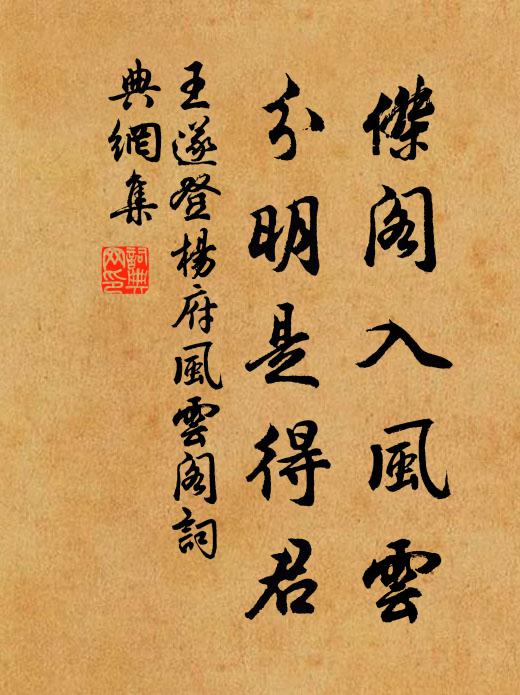 傑閣入風雲
分明是得君
王遂登楊府風雲閣詞
典網集
詞典
网印